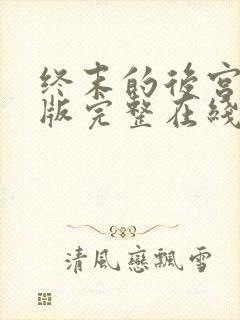 终末的後宫
版完整在綫
清風戀飄雪